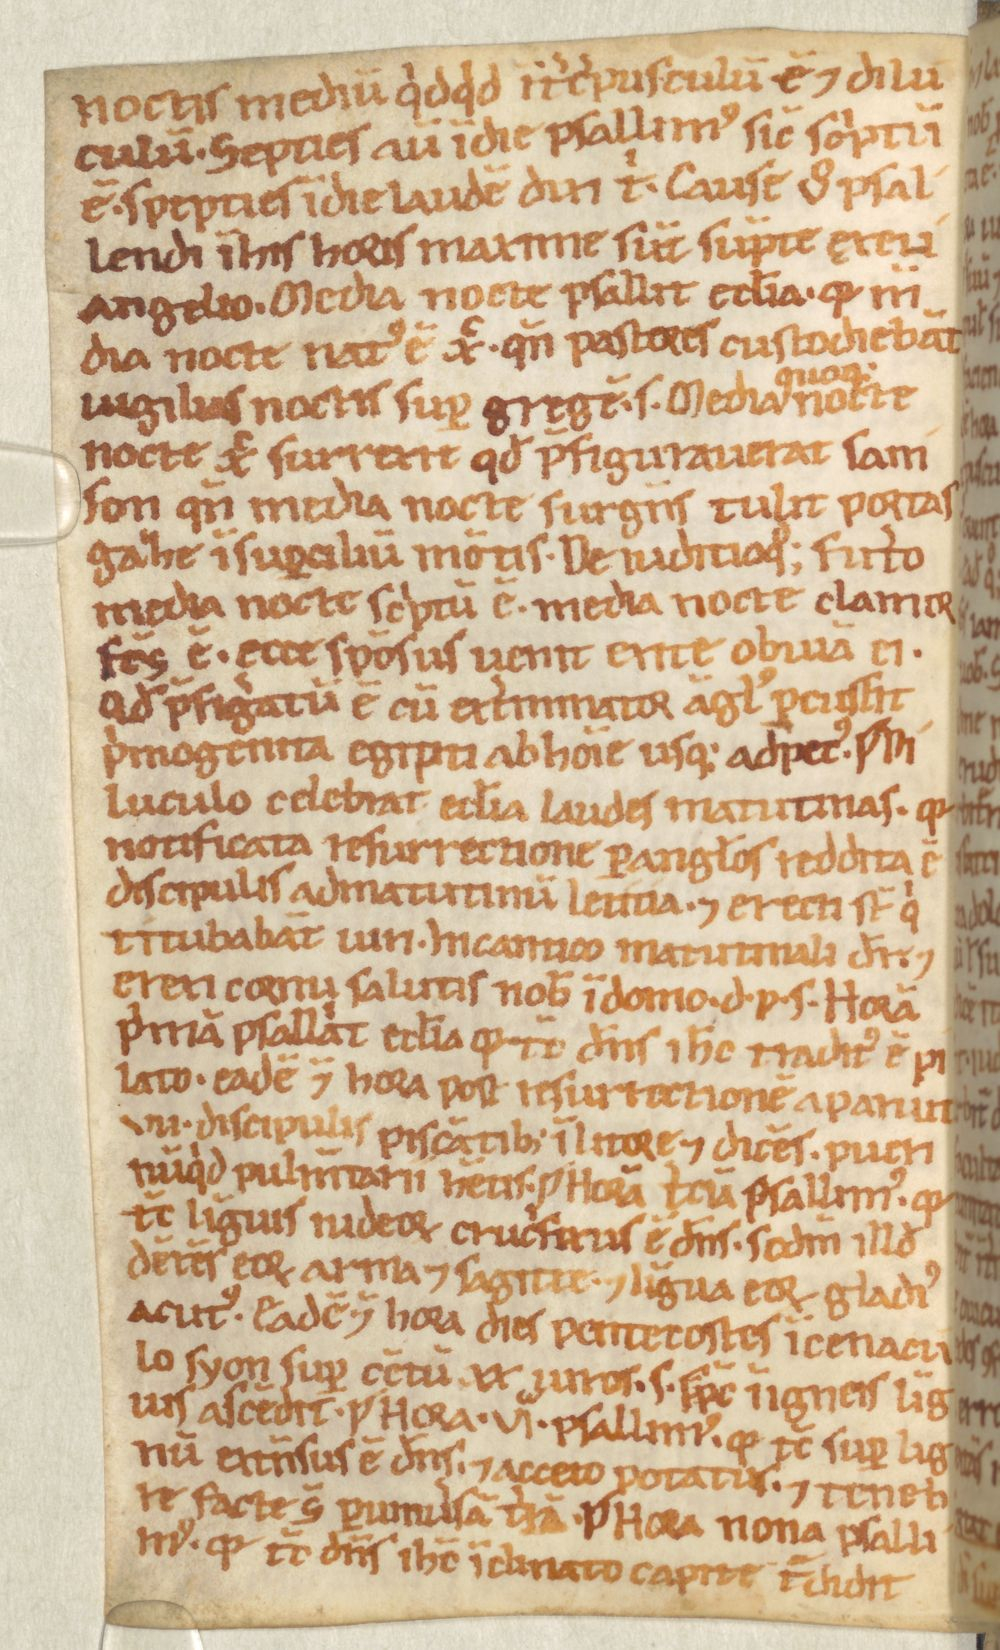 noctis mediū q̇dq̇d īt̄ c̓pusculū ē ⁊ dilu
culū. Septies aū ī die psallimꝰ sic̄ sc̓ptū
ē. septies ī die laudē dixi t̄. Cause ꝟ psal
lendi ī his horis maxime sūt sūpte ex eū
angelio. Media nocte psallit ecc̄lia. qꝛ me
dia nocte natꝰ ē xp̄c. qn̄ pastores custodiebāt
uigilias noctis sup̄ gregē. s. Media quoq;
nocte
nocte xp̄c surrexit qd̄ p̄figurauerat sam
son qn̄ media nocte surgēs tulit portas
gaże ī sup̄ciliū mōtis. De iudicio q; futr̄o
media nocte sc̓ptū ē. media nocte clamor
fcs̄ ē. ecce spōsus uenit exite obuiā ei.
Qd̄ p̄figr̄atū ē cū ext̄minator āgl̄ꝰ p̄cussit
p̓mogenita egipti ab hoīe usq; ad pec̄ꝰ. ⁋ Di
luculo celebrat ecc̄lia laudes matutinas. qꝛ
notificata resurrectione p̄ angl̄os reddita ē
discipulis ad matutinū letitia. ⁊ erecti st̄ q̓
titubabāt uiri. In cantico matutinali dr̄. ⁊
erexi cornu salutis nob̄ ī domo. d. p. s. Horā
p̓mā psallāt ecc̄lia qꝛ tc̄ dn̄s ihc̄ traditꝰ ē pi
lato. eadē ⁊ hora post resurrectionē aparuit
vii. discipulis piscātib; ī litore ⁊ dicēs. pueri
nūq̓d pulm̄tarii hētis. ⁋ Horā t̓ciā psallimꝰ. qꝛ
tc̄ līguis iudeoꝝ crucifixus ē dn̄s. scdm̄ illd̄
dētēs eoꝝ arma ⁊ sagitte. ⁊ līgua eoꝝ gladiꝰ
acutꝰ. Eadē ⁊ hora dies pentecostes ī cenacu
lo syon sup̄ cētū xx uiros. s. sp̄c ī igneis līg
uis ascēdit. ⁋ Hora. vi. psallimꝰ. qꝛ tc̄ sup̄ lig
nū extēsus ē dn̄s. ⁊ aceto potatus. ⁊ teneb
re facte s̄ p̄ uniu̓sā t̓rā. ⁋ Hora nona psalli
mꝰ. qꝛ tc̄ dn̄s ihc̄ īclinato capite t̓didit